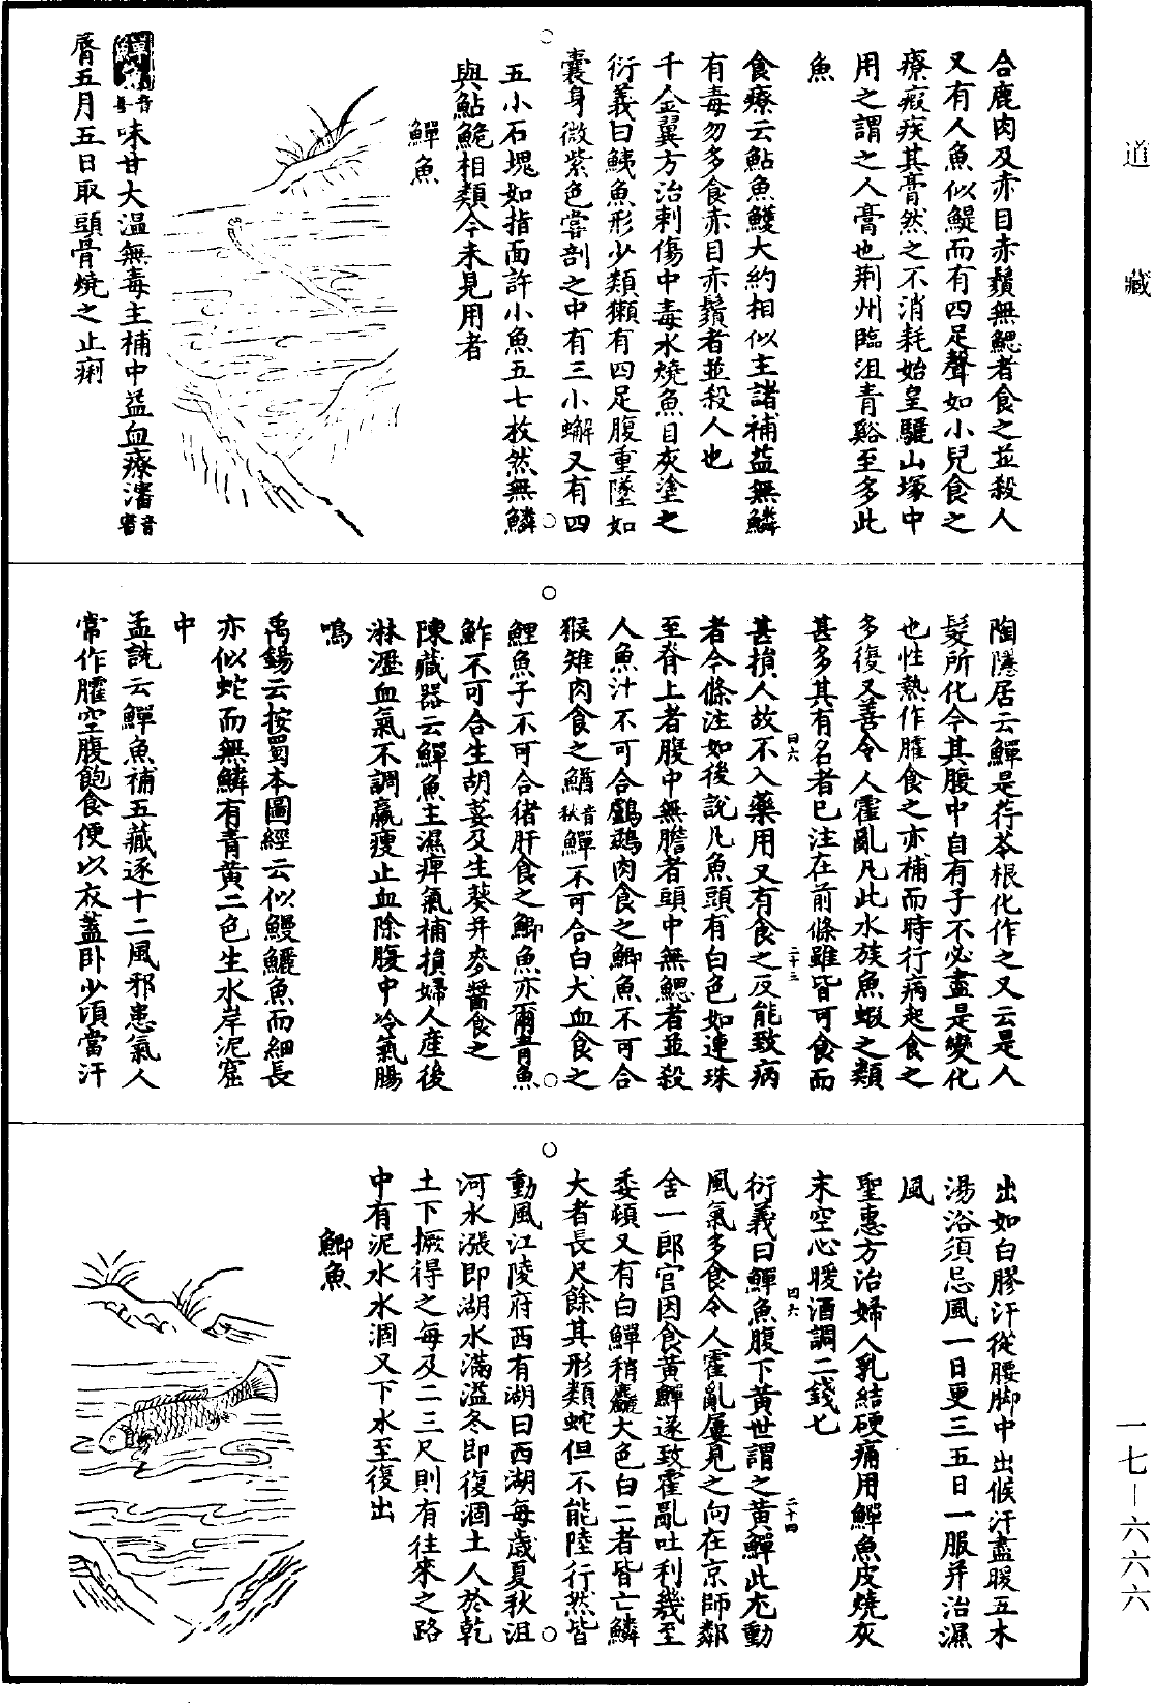 道藏
合鹿肉及赤目赤鬚無鰓者食之並殺人
又有人魚似鯷而有四足聲如小兒食之
療瘕疾其膏然之不消耗始皇驪山塚中
用之謂之人膏也荆州臨沮青谿至多此
魚
食療云鮎魚鱯大約相似主諸補益無鱗
有毒勿多食赤目赤鬚者並殺人也
千金翼方治刺傷中毒水燒魚目灰塗之
衍義曰鮧魚形少類獺有四足腹重墜如
囊身微紫色嘗剖之中有三小蠏又有四
五小石塊如指面許小魚五七枚然無鱗
與鮎鮠相類今未見用者
鱓魚
鱓魚音善味甘大温無毒主補中益血療瀋音審
脣五月五日取頭骨燒之止痢
陶隱居云鱓是荇苓根化作之又云是人
髮所化今其腹中自有子不必盡是變化
也性熱作臛食之亦補而時行病起食之
多復又善令人霍亂凡此水族魚蝦之類
甚多其有名者已注在前條雖皆可食而
甚損人故不入藥用又有食之反能致病
者今條注如後說凡魚頭有白色如連珠
至脊上者腹中無膽者頭中無鰓者並殺
人魚汁不可合鸕鷀肉食之鯽魚不可合
猴雉肉食之鰌音秋鱓不可合白犬血食之
鯉魚子不可合猪肝食之鯽魚亦爾青魚
鮓不可合生胡荽及生葵并麥醬食之
陳藏器云鱓魚主濕痺氣補損婦人產後
淋瀝血氣不調羸瘦止血除腹中冷氣腸
鳴
禹錫云按蜀本圖經云似鰻鱺魚而細長
亦似蛇而無鱗有青黄二色生水岸泥窟
中
孟詵云鱓魚補五藏逐十二風邪患氣人
常作臛空腹飽食便以衣蓋卧少頃當汗
出如白膠汗從腰脚中出候汗盡暖五木
湯浴須忌風一日更三五日一服并治濕
風
聖惠方治婦人乳結硬痛用鱓魚皮燒灰
末空心暖酒調二錢匕
衍義曰鱓魚腹下黄世謂之黄鱓此尤動
風氣多食令人霍亂屢見之向在京師鄰
舍一郎官因食黄鱓遂致霍亂吐利幾至
委頓又有白鱓稍麤大色白二者皆亡鱗
大者長尺餘其形類蛇但不能陸行然皆
動風江陵府西有湖曰西湖每歲夏秋沮
河水漲即湖水滿溢冬即復涸土人於乾
土下撅得之每及二三尺則有往來之路
中有泥水水涸又下水至復出
鯽魚
四六
二十三
四六
二十四
一七—六六六